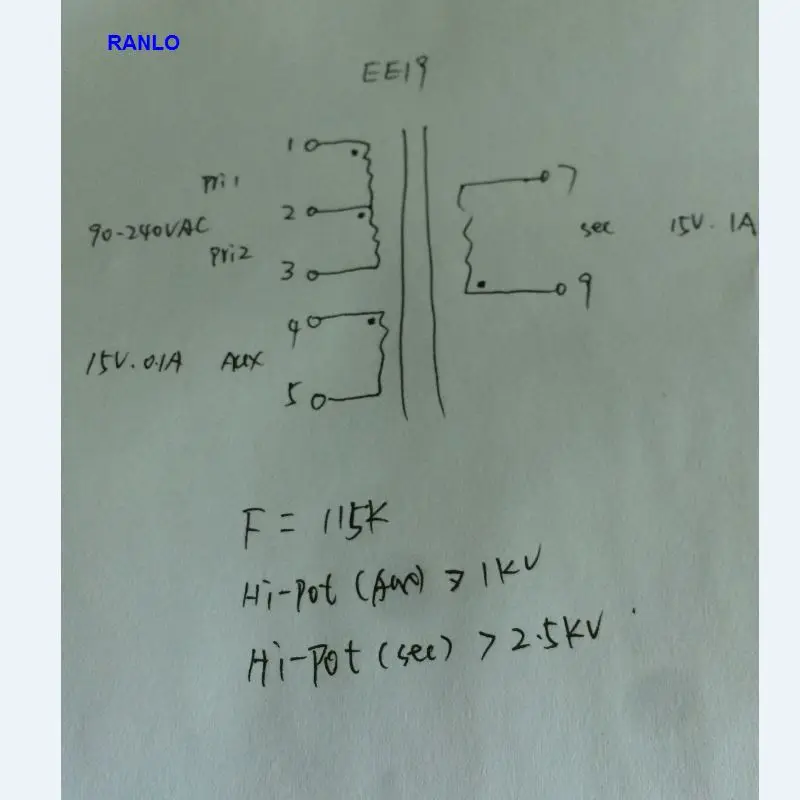 RANLO
EE19
1
Pri1
2
90-240VAC
Pri2
3
4
15V. 0.1A AUX
5
7
sec 15V. 1A
9
F = 115K
Hi-Pot (Aux) > 1KV
Hi-Pot (sec) > 2.5KV